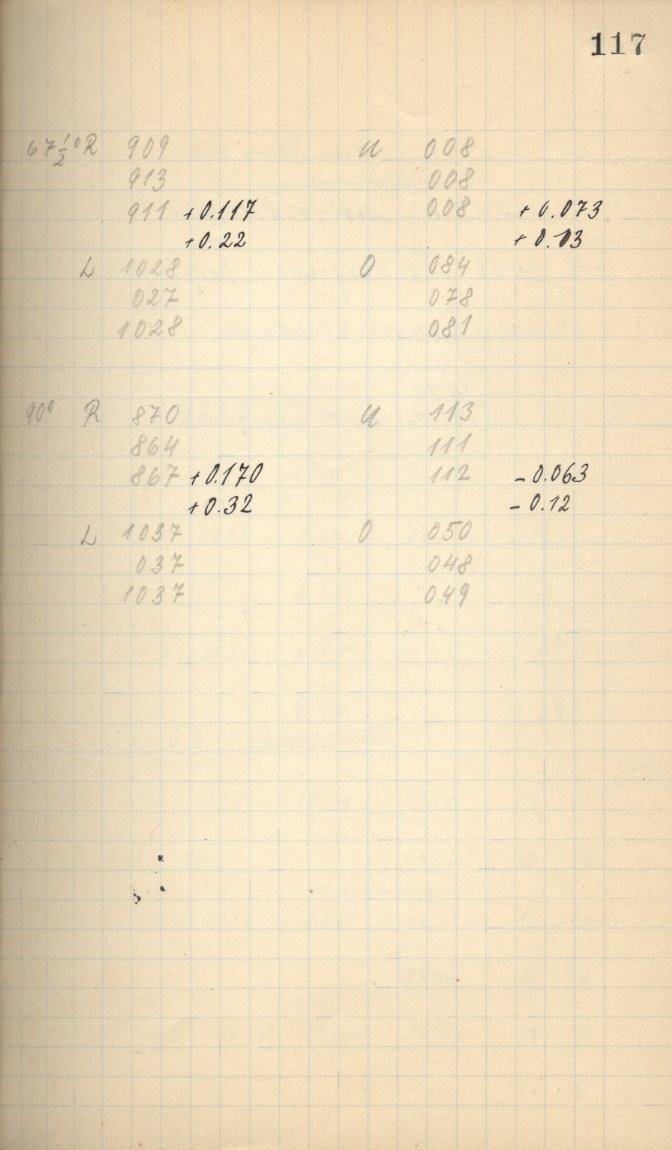 117
67½° R 909 U 008
913 008
911 +0.117 008 +0.073
+0.22 +0.13
L 1028 O 084
027 078
1028 081
90° R 870 U 113
864 111
867 +0.170 112 -0.063
+0.32 -0.12
L 1037 O 050
037 048
1037 049